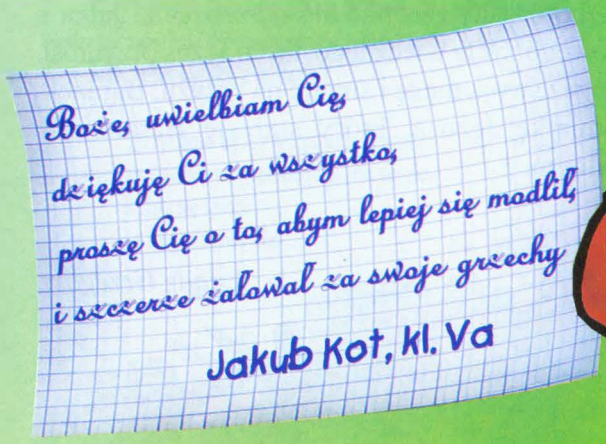 Boże, uwielbiam Cię,
dziękuję Ci za wszystko,
proszę Cię o to, abym lepiej się modlił,
i szczerze żałował za swoje grzechy
Jakub Kot, kl. Va